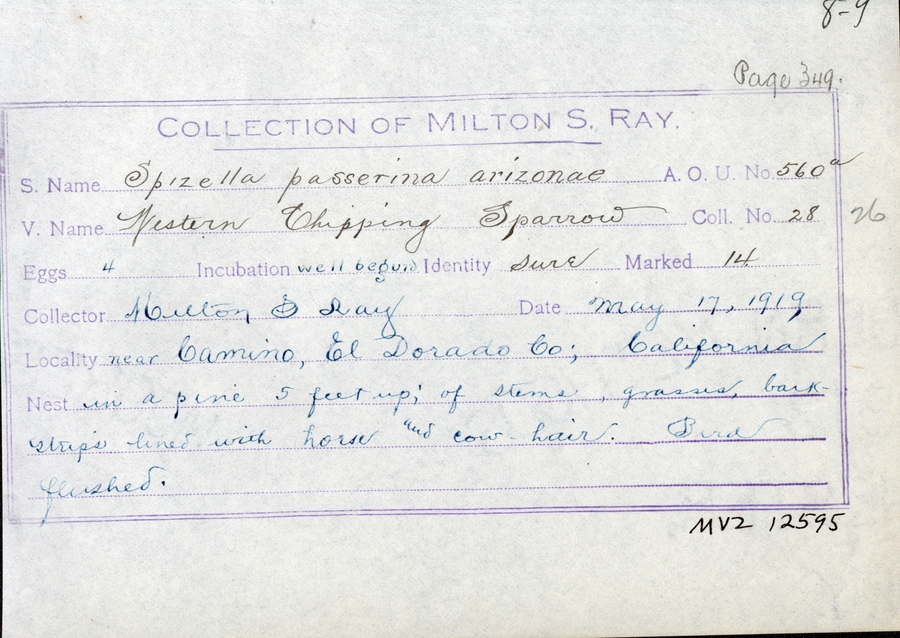 8-9
Page 349.
COLLECTION OF MILTON S. RAY.
S. Name Spizella passerina arizonae A. O. U. No. 560a
V. Name Western Chipping Sparrow Coll. No. 28 26
Eggs 4 Incubation well begun Identity sure Marked 14
Collector Milton S Ray Date May 17, 1919
Locality near Camino, El Dorado Co; California
Nest in a pine 5 feet up; of stems, grasses, bark-
strips lined with horse and cow-hair. Bird
flushed.
MVZ 12595